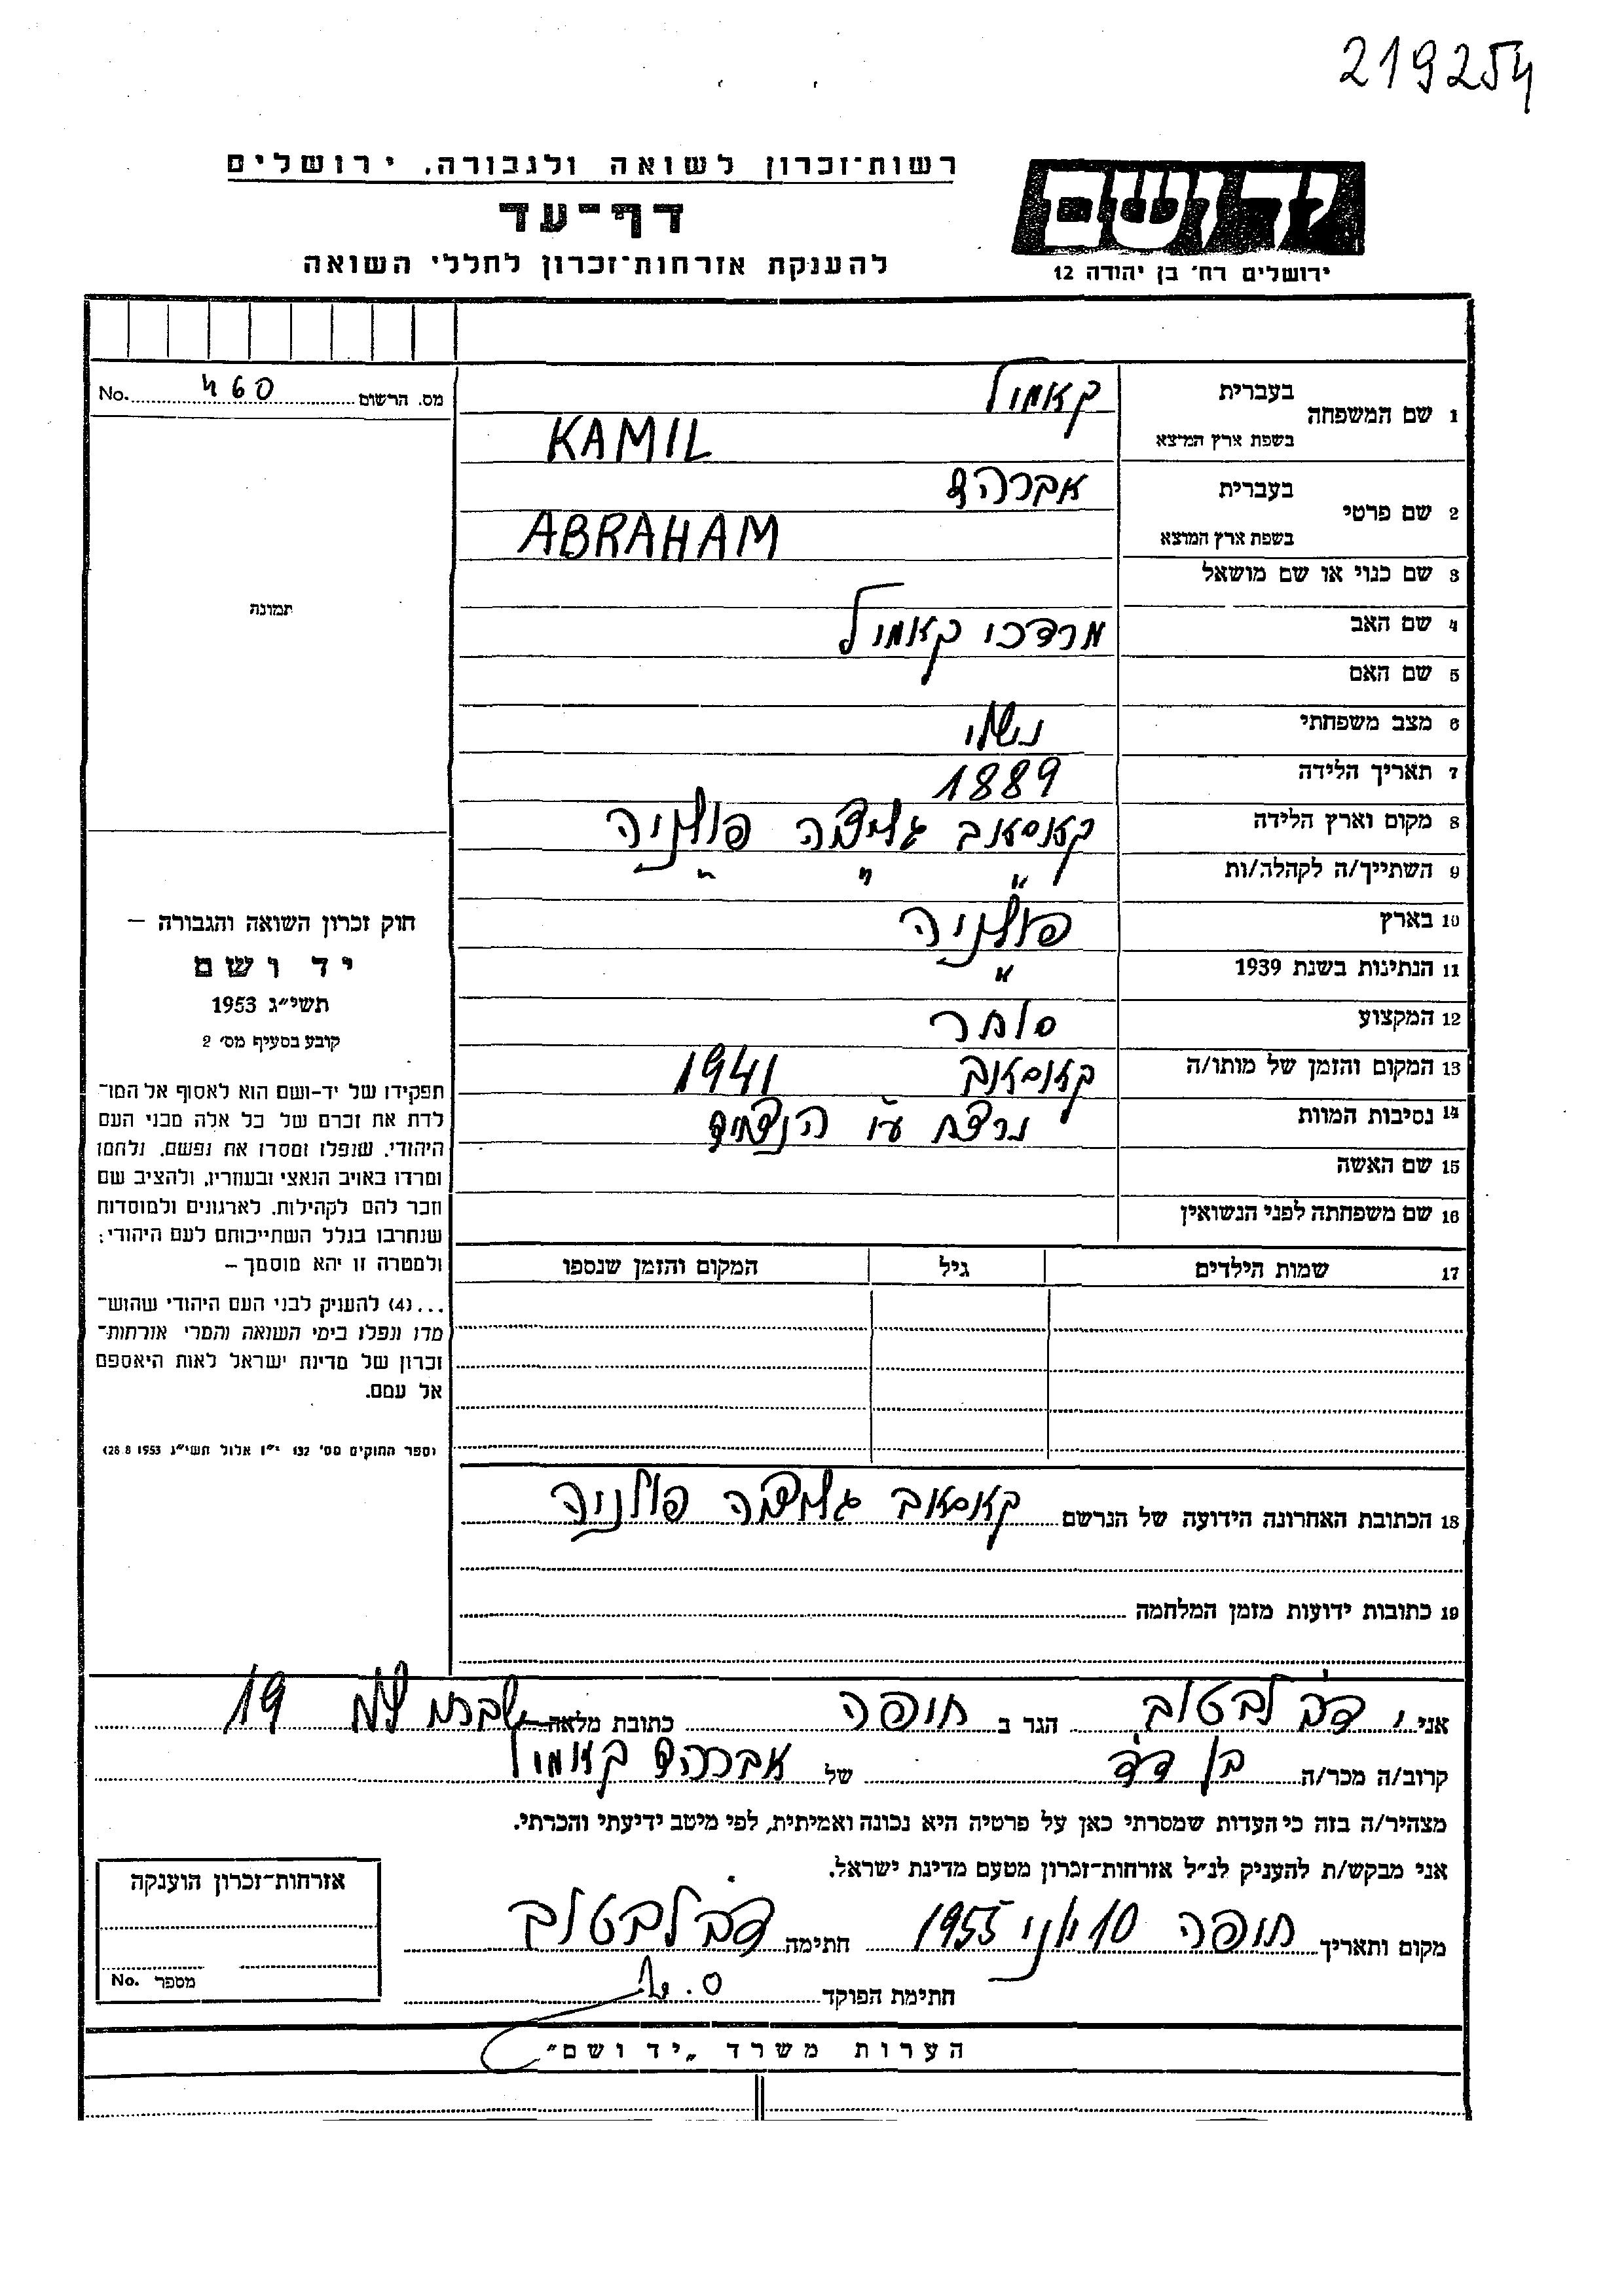 219254
רשות־זכרון לשואה ולגבורה, ירושלים
דף־עד
להענקת אזרחות־זכרון לחללי השואה
יד ושם
ירושלים רח׳ בן יהודה 12
מס. הרשום 460 No.
תמונה
1 שם המשפחה בעברית קאמיל
בשפת ארץ המוצא KAMIL
2 שם פרטי בעברית אברהם
בשפת ארץ המוצא ABRAHAM
3 שם כנוי או שם מושאל
4 שם האב מרדכי קאמיל
5 שם האם
6 מצב משפחתי נשוי
7 תאריך הלידה 1889
8 מקום וארץ הלידה קאסאוב גליציה פולניה
9 השתייך/ה לקהלה/ות " " "
10 בארץ פולניה
11 הנתינות בשנת 1939 "
12 המקצוע סוחר
13 המקום והזמן של מותו/ה קאסאוב 1941
14 נסיבות המוות נרצח ע״י הנצים
15 שם האשה
16 שם משפחתה לפני הנשואין
17 שמות הילדים גיל המקום והזמן שנספו
חוק זכרון השואה והגבורה –
יד ושם
תשי״ג 1953
קובע בסעיף מס׳ 2
תפקידו של יד-ושם הוא לאסוף אל המו־
לדת את זכרם של כל אלה מבני העם
היהודי, שנפלו ומסרו את נפשם, נלחמו
ומרדו באויב הנאצי ובעוזריו, ולהציב שם
וזכר להם לקהילות, לארגונים ולמוסדות
שנחרבו בגלל השתייכותם לעם היהודי;
ולמטרה זו יהא מוסמך –
...(4) להעניק לבני העם היהודי שהוש־
מדו ונפלו בימי השואה והמרי אזרחות־
זכרון של מדינת ישראל לאות היאספם
אל עמם.
(ספר החוקים מס׳ 132 י״ז אלול תשי״ג 28.8.1953)
18 הכתובת האחרונה הידועה של הנרשם קאסאוב גליציה פולניה
19 כתובות ידועות מזמן המלחמה
אני דב לבטוב הגר ב חיפה כתובת מלאה 19
קרוב/ה מכר/ה בן דד של אברהם קאמיל
מצהיר/ה בזה כי העדות שמסרתי כאן על פרטיה היא נכונה ואמיתית, לפי מיטב ידיעתי והכרתי.
אני מבקש/ת להעניק לנ״ל אזרחות־זכרון מטעם מדינת ישראל.
מקום ותאריך חיפה 10 יוני 1955 חתימה דב לבטוב
חתימת הפוקד
אזרחות־זכרון הוענקה
מספר No.
הערות משרד „יד ושם"